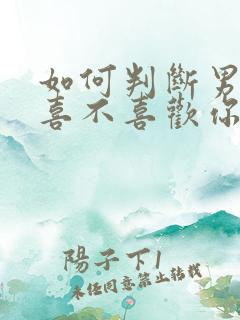 如何判斷男
喜不喜歡你
陽子下1
未任同意禁止轉載